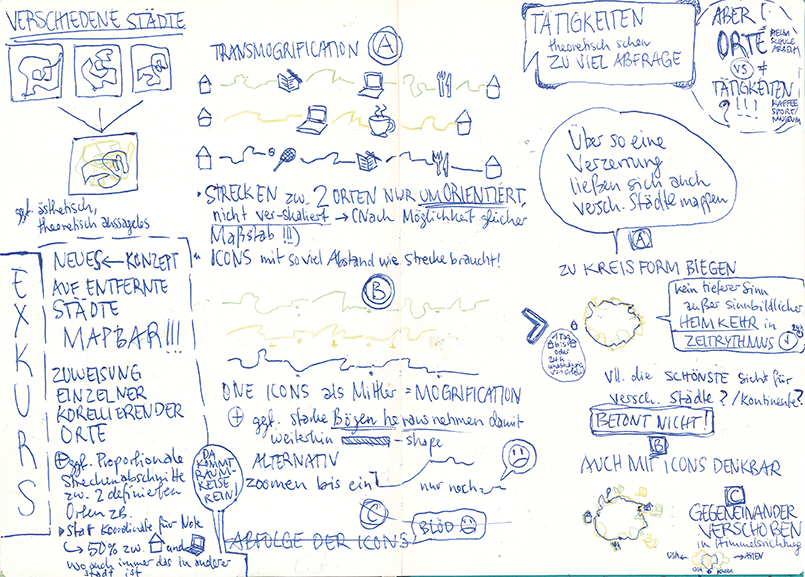 VERSCHIEDENE STÄDTE
ggf. ästhetisch,
theoretisch aussagelos
EXKURS
NEUES ← KONZEPT
AUF ENTFERNTE
STÄDTE
MAPBAR!!!
ZUWEISUNG
EINZELNER
KORELLIERENDER
ORTE
ggf. Proportionale
Streckenabschnitte
zw. 2 definierten
Orten zB.
Statt Koordinate für Note
50% zw. und
wo auch immer das in anderer
Stadt ist
DA
KOMMT
RAUM-
REISE
REIN!
TRANSMOGRIFICATION A
• STRECKEN zw. 2 ORTEN NUR UMORIENTIERT,
nicht ver-skaliert → (Nach Möglichkeit gleicher
Maßstab!!!)
ICONS mit so viel Abstand wie Strecke braucht!
B
ONE ICONS als Mittler = MOGRIFICATION
ggf. starke Bögen herausnehmen damit
weiterhin – shape
ALTERNATIV
zoomen bis ein
nur noch
C
BLÖD
ABFOLGE DER ICONS
TÄTIGKEITEN
theoretisch schon
ZU VIEL ABFRAGE
ABER
ORTE
HEIM
SCHULE
ARBEIT
VS ≠
TÄTIGKEITEN
? !!!
KAFFEE
SPORT
MUSEUM
Über so eine
Verzerrung
ließen sich auch
versch. Städte mappen
A
ZU KREISFORM BIEGEN
1 Tag
bis
oder
24h
kein tieferer Sinn
außer sinnbildlicher
HEIMKEHR in
ZEITRYTHMUS
24h
Vll. die SCHÖNSTE Sicht für
versch. Städte?/Kontinente?
BETONT NICHT!
B
AUCH MIT ICONS DENKBAR
C
GEGENEINANDER
VERSCHOBEN
in Himmelsrichtung
USA ← → ASIEN